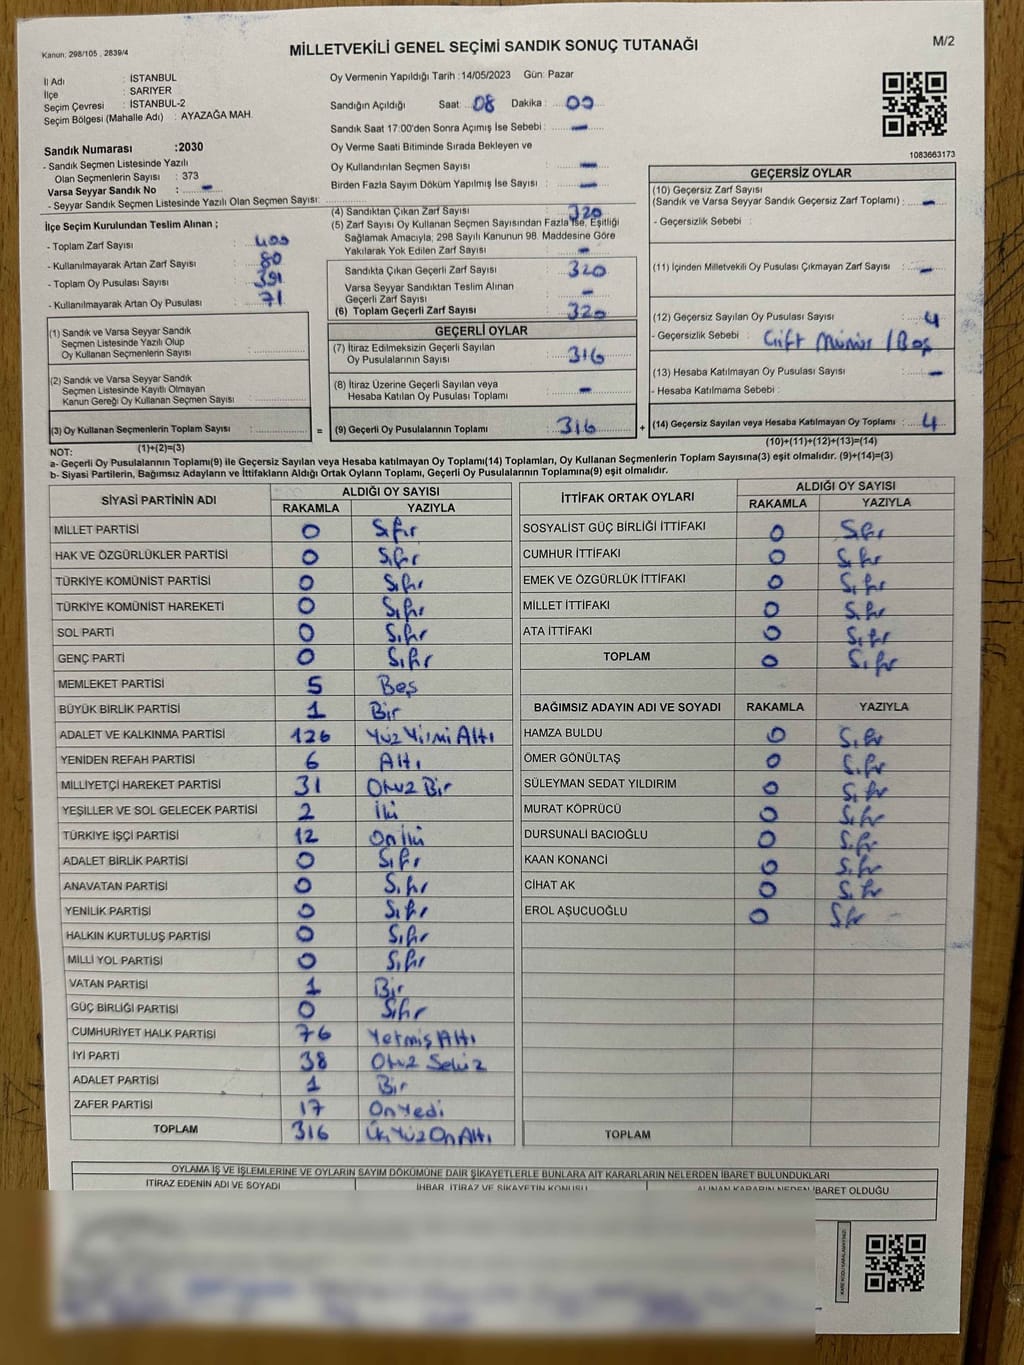 Kanun: 298/105 , 2839/4
MİLLETVEKİLİ GENEL SEÇİMİ SANDIK SONUÇ TUTANAĞI
M/2
İl Adı : İSTANBUL
İlçe : SARIYER
Seçim Çevresi : İSTANBUL-2
Seçim Bölgesi (Mahalle Adı) : AYAZAĞA MAH.
Sandık Numarası :2030
- Sandık Seçmen Listesinde Yazılı
Olan Seçmenlerin Sayısı : 373
Varsa Seyyar Sandık No : -
- Seyyar Sandık Seçmen Listesinde Yazılı Olan Seçmen Sayısı:
İlçe Seçim Kurulundan Teslim Alınan ;
- Toplam Zarf Sayısı : 400
- Kullanılmayarak Artan Zarf Sayısı : 80
- Toplam Oy Pusulası Sayısı : 391
- Kullanılmayarak Artan Oy Pusulası : 71
(1) Sandık ve Varsa Seyyar Sandık
Seçmen Listesinde Yazılı Olup
Oy Kullanan Seçmenlerin Sayısı :
(2) Sandık ve Varsa Seyyar Sandık
Seçmen Listesinde Kayıtlı Olmayan
Kanun Gereği Oy Kullanan Seçmen Sayısı :
(3) Oy Kullanan Seçmenlerin Toplam Sayısı : =
(1)+(2)=(3)
Oy Vermenin Yapıldığı Tarih :14/05/2023 Gün: Pazar
Sandığın Açıldığı Saat: 08 Dakika : 00
Sandık Saat 17:00'den Sonra Açımış İse Sebebi : -
Oy Verme Saati Bitiminde Sırada Bekleyen ve
Oy Kullandırılan Seçmen Sayısı : -
Birden Fazla Sayım Döküm Yapılmış İse Sayısı : -
(4) Sandıktan Çıkan Zarf Sayısı : 320
(5) Zarf Sayısı Oy Kullanan Seçmen Sayısından Fazla İse, Eşitliği
Sağlamak Amacıyla; 298 Sayılı Kanunun 98. Maddesine Göre
Yakılarak Yok Edilen Zarf Sayısı : -
Sandıkta Çıkan Geçerli Zarf Sayısı : 320
Varsa Seyyar Sandıktan Teslim Alınan
Geçerli Zarf Sayısı : -
(6) Toplam Geçerli Zarf Sayısı : 320
GEÇERLİ OYLAR
(7) İtiraz Edilmeksizin Geçerli Sayılan
Oy Pusulalarının Sayısı : 316
(8) İtiraz Üzerine Geçerli Sayılan veya
Hesaba Katılan Oy Pusulası Toplamı : -
(9) Geçerli Oy Pusulalarının Toplamı : 316 +
1083663173
GEÇERSİZ OYLAR
(10) Geçersiz Zarf Sayısı
(Sandık ve Varsa Seyyar Sandık Geçersiz Zarf Toplamı) : -
- Geçersizlik Sebebi :
(11) İçinden Milletvekili Oy Pusulası Çıkmayan Zarf Sayısı : -
(12) Geçersiz Sayılan Oy Pusulası Sayısı : 4
- Geçersizlik Sebebi : Çift Mühür / Boş
(13) Hesaba Katılmayan Oy Pusulası Sayısı : -
- Hesaba Katılmama Sebebi :
(14) Geçersiz Sayılan veya Hesaba Katılmayan Oy Toplamı : 4
(10)+(11)+(12)+(13)=(14)
NOT:
a- Geçerli Oy Pusulalarının Toplamı(9) ile Geçersiz Sayılan veya Hesaba katılmayan Oy Toplamı(14) Toplamları, Oy Kullanan Seçmenlerin Toplam Sayısına(3) eşit olmalıdır. (9)+(14)=(3)
b- Siyasi Partilerin, Bağımsız Adayların ve İttifakların Aldığı Ortak Oyların Toplamı, Geçerli Oy Pusulalarının Toplamına(9) eşit olmalıdır.
SİYASİ PARTİNİN ADI ALDIĞI OY SAYISI
RAKAMLA YAZIYLA
MİLLET PARTİSİ 0 Sıfır
HAK VE ÖZGÜRLÜKLER PARTİSİ 0 Sıfır
TÜRKİYE KOMÜNİST PARTİSİ 0 Sıfır
TÜRKİYE KOMÜNİST HAREKETİ 0 Sıfır
SOL PARTİ 0 Sıfır
GENÇ PARTİ 0 Sıfır
MEMLEKET PARTİSİ 5 Beş
BÜYÜK BİRLİK PARTİSİ 1 Bir
ADALET VE KALKINMA PARTİSİ 126 Yüz Yirmi Altı
YENİDEN REFAH PARTİSİ 6 Altı
MİLLİYETÇİ HAREKET PARTİSİ 31 Otuz Bir
YEŞİLLER VE SOL GELECEK PARTİSİ 2 İki
TÜRKİYE İŞÇİ PARTİSİ 12 On İki
ADALET BİRLİK PARTİSİ 0 Sıfır
ANAVATAN PARTİSİ 0 Sıfır
YENİLİK PARTİSİ 0 Sıfır
HALKIN KURTULUŞ PARTİSİ 0 Sıfır
MİLLİ YOL PARTİSİ 0 Sıfır
VATAN PARTİSİ 1 Bir
GÜÇ BİRLİĞİ PARTİSİ 0 Sıfır
CUMHURİYET HALK PARTİSİ 76 Yetmiş Altı
İYİ PARTİ 38 Otuz Sekiz
ADALET PARTİSİ 1 Bir
ZAFER PARTİSİ 17 On Yedi
TOPLAM 316 Üç Yüz On Altı
İTTİFAK ORTAK OYLARI ALDIĞI OY SAYISI
RAKAMLA YAZIYLA
SOSYALİST GÜÇ BİRLİĞİ İTTİFAKI 0 Sıfır
CUMHUR İTTİFAKI 0 Sıfır
EMEK VE ÖZGÜRLÜK İTTİFAKI 0 Sıfır
MİLLET İTTİFAKI 0 Sıfır
ATA İTTİFAKI 0 Sıfır
TOPLAM 0 Sıfır
BAĞIMSIZ ADAYIN ADI VE SOYADI RAKAMLA YAZIYLA
HAMZA BULDU 0 Sıfır
ÖMER GÖNÜLTAŞ 0 Sıfır
SÜLEYMAN SEDAT YILDIRIM 0 Sıfır
MURAT KÖPRÜCÜ 0 Sıfır
DURSUNALİ BACIOĞLU 0 Sıfır
KAAN KONANCİ 0 Sıfır
CİHAT AK 0 Sıfır
EROL AŞUCUOĞLU 0 Sıfır
TOPLAM
OYLAMA İŞ VE İŞLEMLERİNE VE OYLARIN SAYIM DÖKÜMÜNE DAİR ŞİKAYETLERLE BUNLARA AİT KARARLARIN NELERDEN İBARET BULUNDUKLARI
İTİRAZ EDENİN ADI VE SOYADI İHBAR, İTİRAZ VE ŞİKAYETİN KONUSU ALINAN KARARIN NEDEN İBARET OLDUĞU